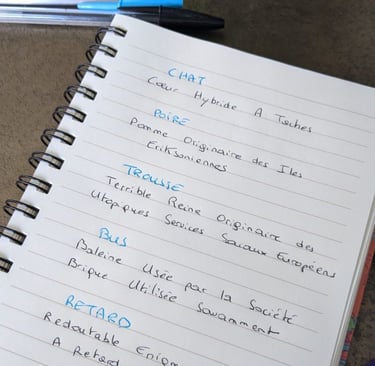 CHAT
Cœur Hybride A Taches
POIRE
Pomme Originaire des Iles
Eriksoniennes
TROUSSE
Terrible Reine Originaire des
Utopiques Services Sociaux Européens
BUS
Baleine Usée par la Société
Brique Utilisée Savamment
RETARD
Redoutable Enigm
A Retard